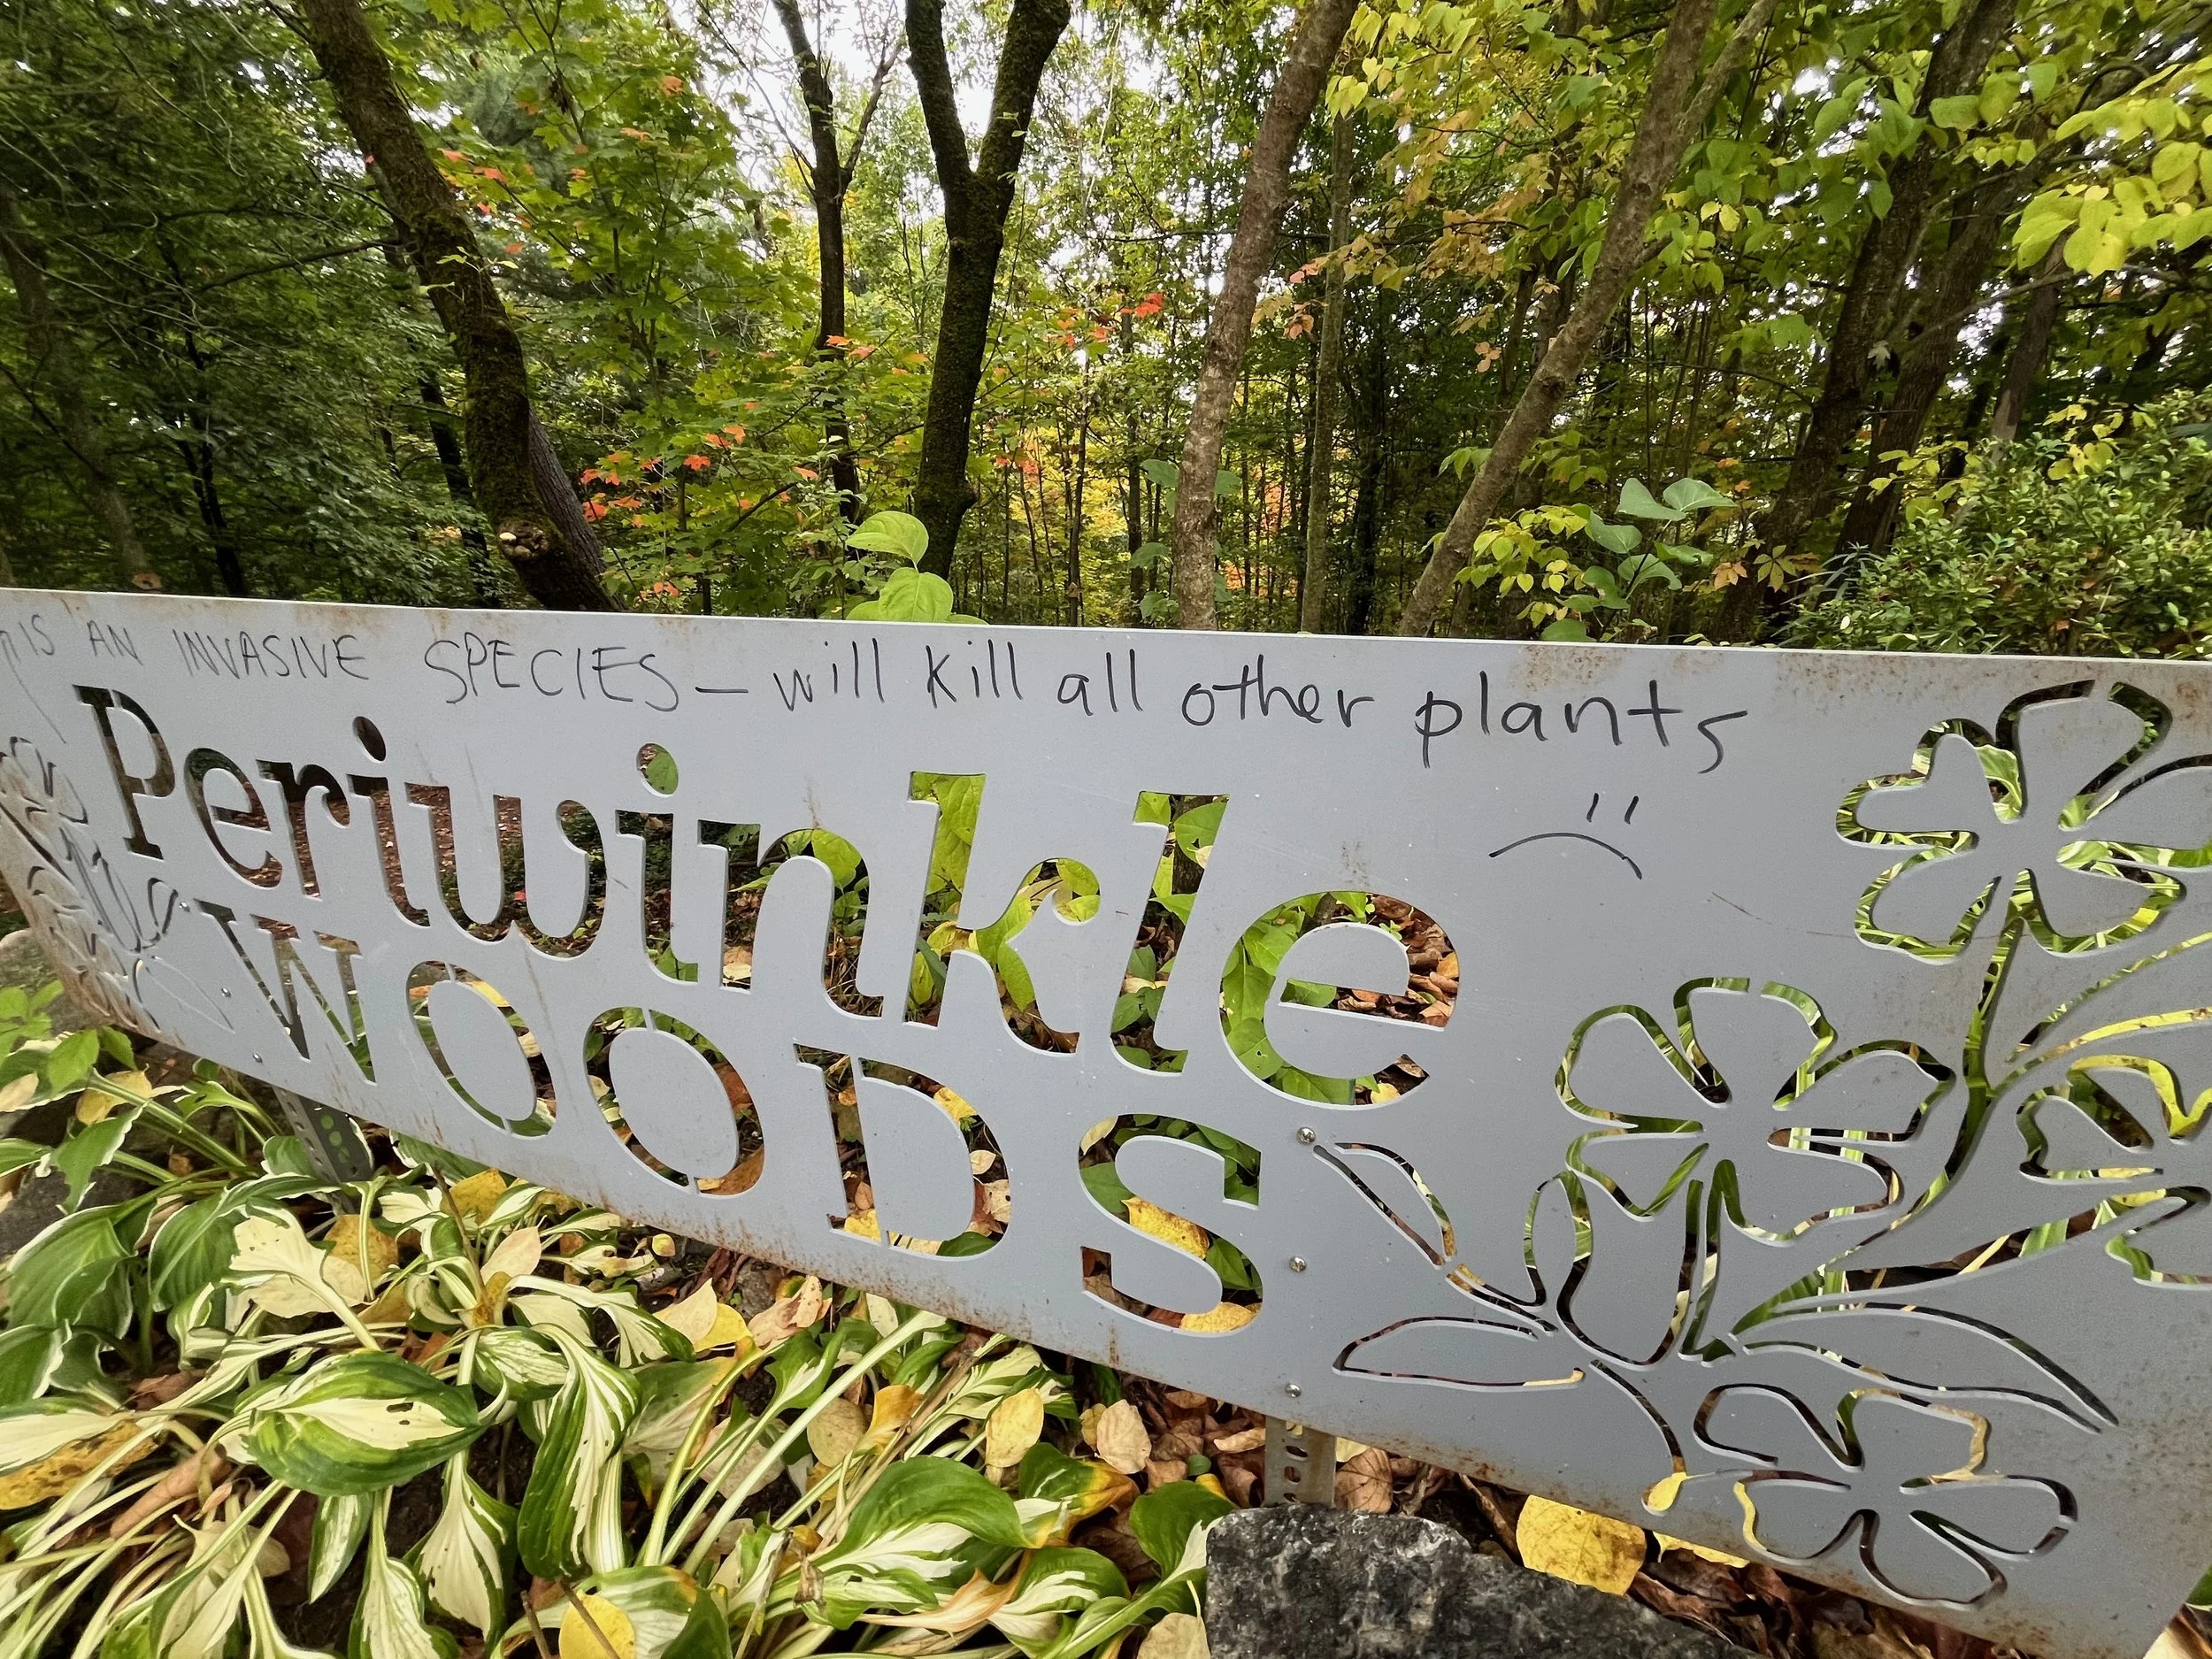 IS AN INVASIVE SPECIES - will kill all other plants
Periwinkle
WOODS